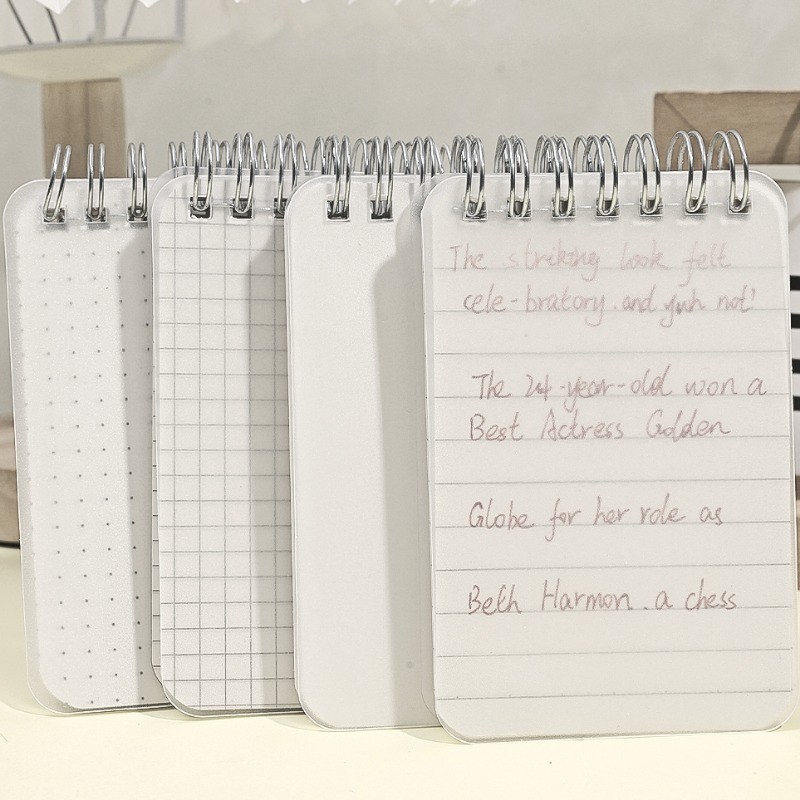 The striking look felt
cele-bratory. and why not!
The 24-year-old won a
Best Actress Golden
Globe for her role as
Beth Harmon. a chess